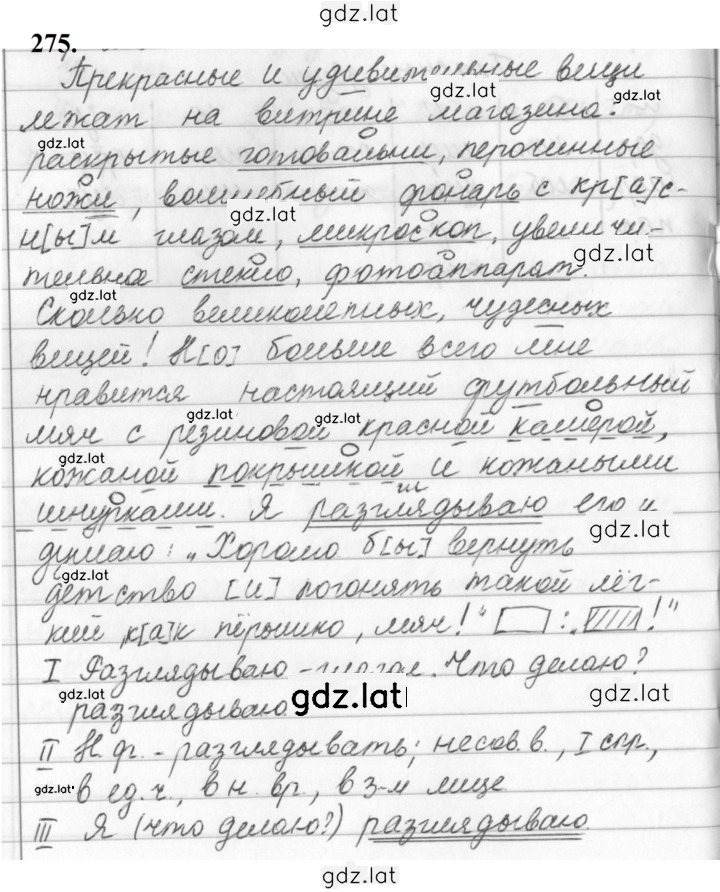 gdz.lat
275.
Прекрасные и удивительные вещи
gdz.lat
лежат на витрине магазина:
gdz.lat
раскрытые готовальни, перочинные
gdz.lat
ножи, волшебный фонарь с кр[а]с-
gdz.lat
н[ы]м глазом, микроскоп, увеличи-
gdz.lat
тельное стекло, фотоаппарат.
gdz.lat
Сколько великолепных, чудесных
вещей! Н[о] больше всего мне
gdz.lat
нравится настоящий футбольный
gdz.lat gdz.lat
мяч с резиновой красной камерой,
gdz.lat
кожаной покрышкой и кожаными
шнурками. Я разглядываю его и
gdz.lat gdz.lat
думаю: „Хорошо б[ы] вернуть
gdz.lat
детство [и] погонять такой лёг-
кий, к[а]к пёрышко, мяч!“ : „ !“
I Разглядываю – глагол. Что делаю?
gdz.lat gdz.lat gdz.lat
разглядываю.
II Н.ф. – разглядывать; несов.в., I спр.,
gdz.lat
в ед.ч., в н.вр., в 3-м лице
III Я (что делаю?) разглядываю.
gdz.lat